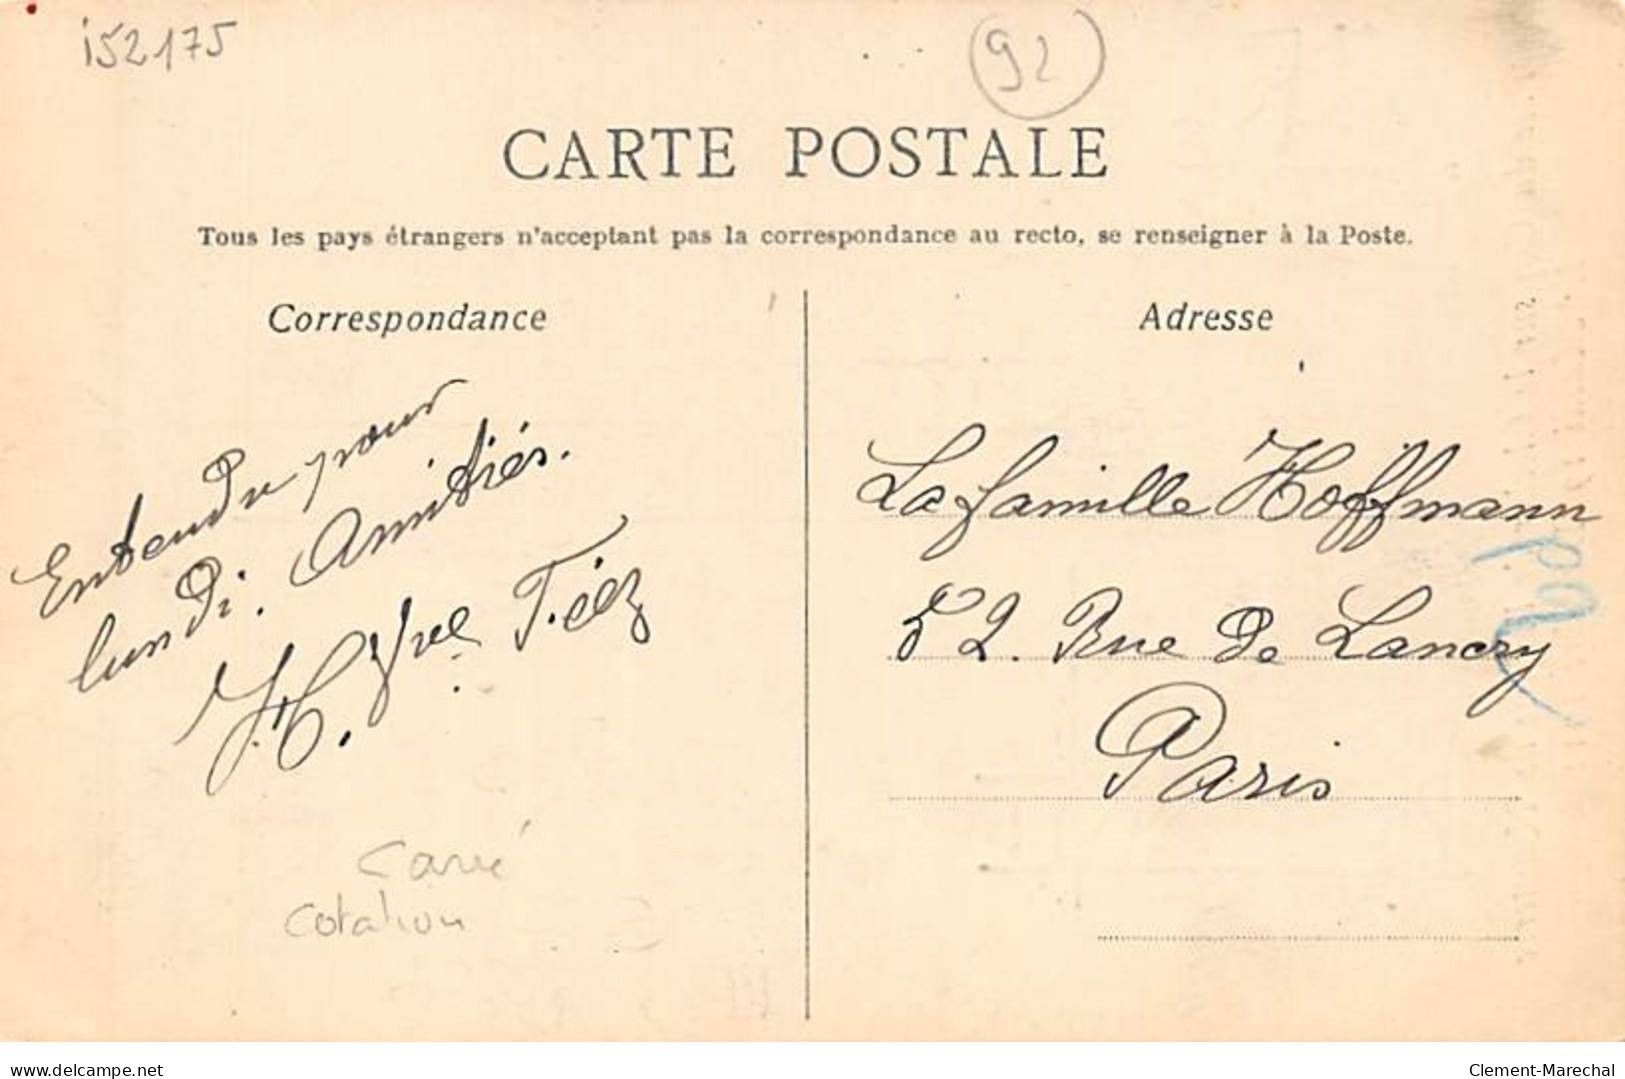 i52175
92
CARTE POSTALE
Tous les pays étrangers n'acceptant pas la correspondance au recto, se renseigner à la Poste.
Correspondance
Adresse
Entendu pour
lundi. Amitiés.
H. Yve
La famille Hoffmann
52. Rue de Lancry
Paris
Carré
cotation
delcampe.net
Clement-Marechal